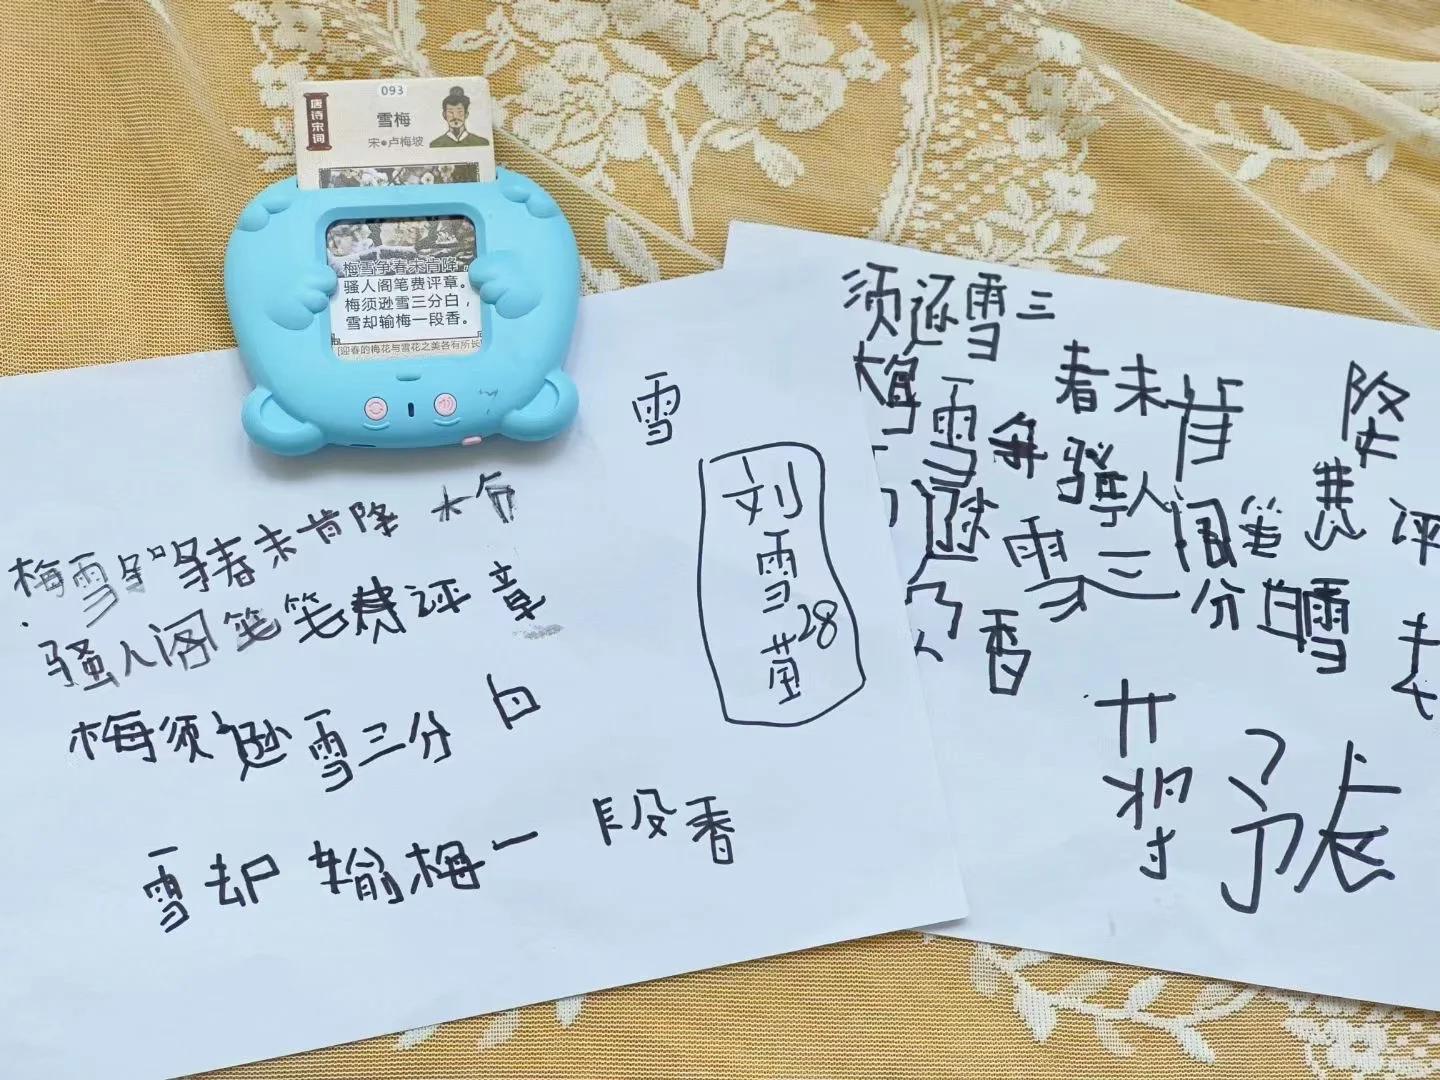 093
唐诗宋词
雪梅
宋●卢梅坡
梅雪争春未肯降，
骚人阁笔费评章。
梅须逊雪三分白，
雪却输梅一段香。
[迎春的梅花与雪花之美各有所长
雪
刘雪萤28
梅雪争春未肯降
骚人阁笔笔费评章
梅须逊雪三分白
雪却输梅一段香
须逊雪三
梅雪争春未肯降
骚人阁笔费评
雪三分白雪
香